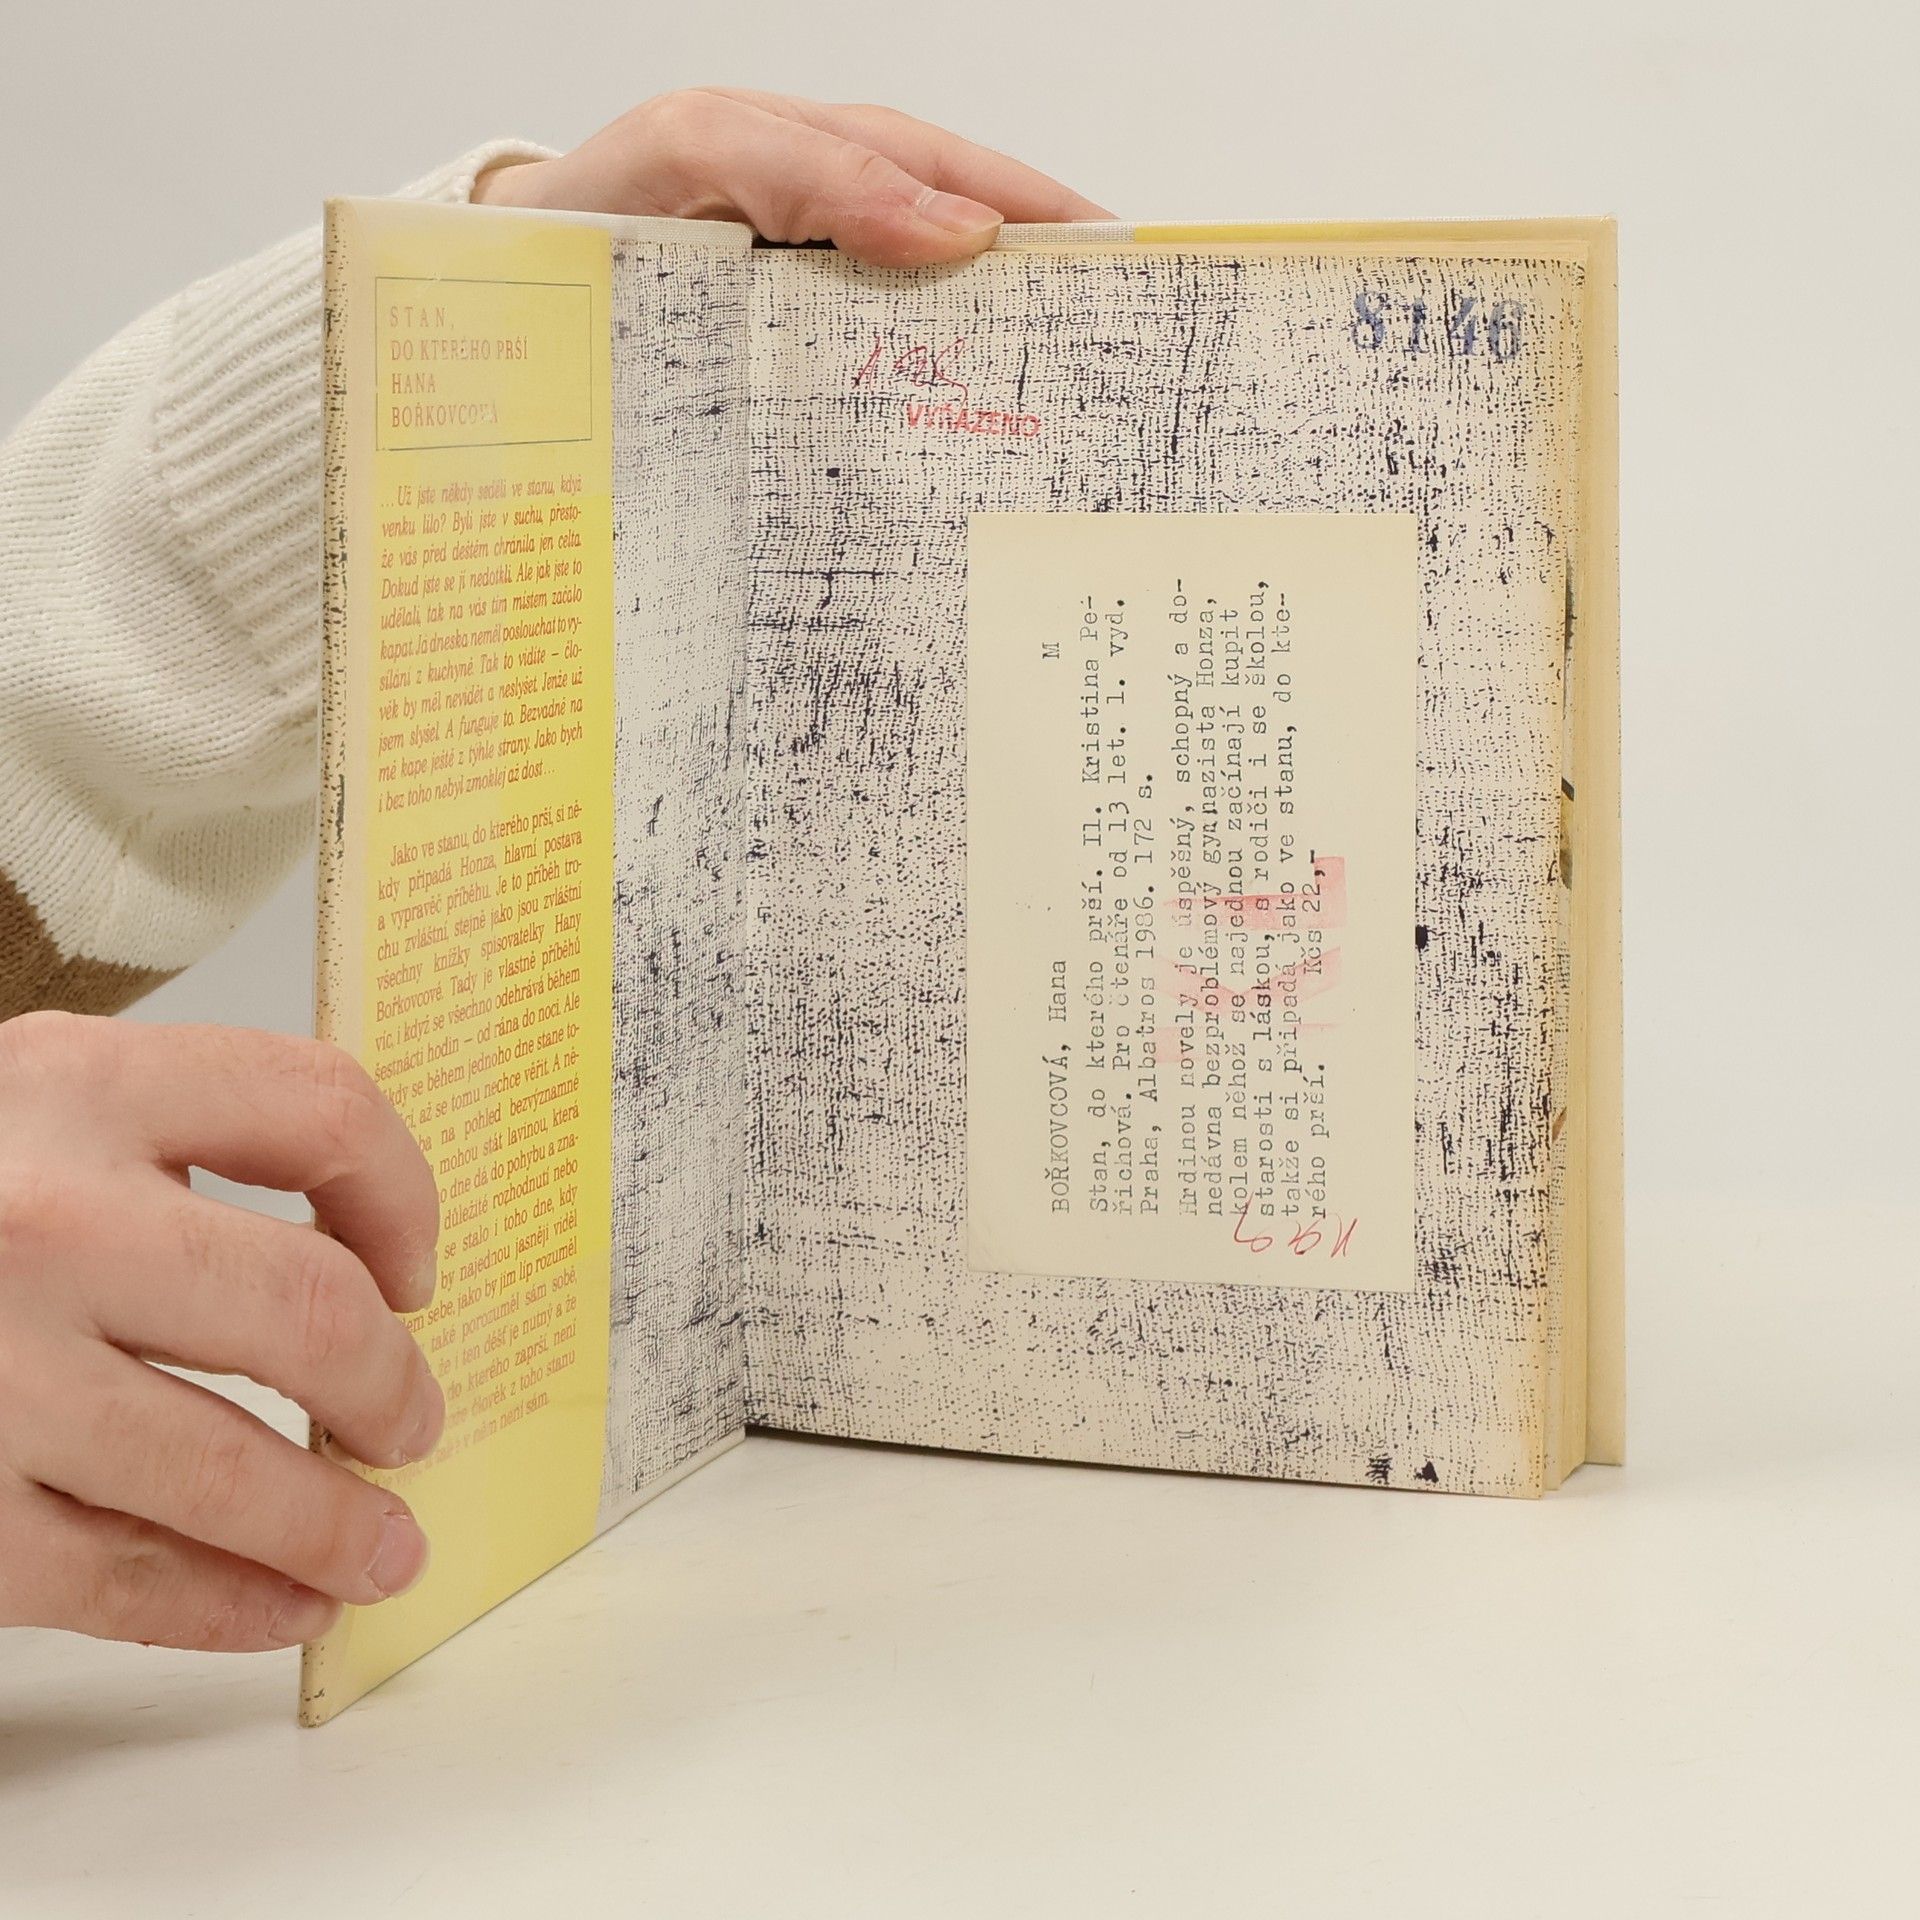 STAN,
DO KTERÉHO PRŠÍ
HANA
BOŘKOVCOVÁ
...Už jste někdy seděli ve stanu, když
venku lilo? Byli jste v suchu, přesto-
že vás před deštěm chránila jen celta.
Dokud jste se jí nedotkli. Ale jak jste to
udělali, tak na vás tím místem začalo
kapat. Já dneska neměl poslouchat to vy-
sílání z kuchyně. Tak to vidíte – člo-
věk by měl nevidět a neslyšet. Jenže už
jsem slyšel. A funguje to. Bezvadně na
mě kape ještě z týhle strany. Jako bych
i bez toho nebyl zmoklej až dost...
Jako ve stanu, do kterého prší, si ně-
kdy připadá Honza, hlavní postava
a vypravěč příběhu. Je to příběh tro-
chu zvláštní, stejně jako jsou zvláštní
všechny knížky spisovatelky Hany
Bořkovcové. Tady je vlastně příběhů
víc, i když se všechno odehrává během
šestnácti hodin – od rána do noci. Ale
někdy se během jednoho dne stane to-
, až se tomu nechce věřit. A ně-
na pohled bezvýznamné
mohou stát lavinou, která
dne dá do pohybu a zna-
důležité rozhodnutí nebo
se stalo i toho dne, kdy
by najednou jasněji viděl
sebe, jako by jim líp rozuměl
také porozuměl sám sobě,
že i ten déšť je nutný a že
do kterého zaprší, není
člověk z toho stanu
v něm není sám.
8146
VYŘAZENO
BOŘKOVCOVÁ, Hana M
Stan, do kterého prší. Il. Kristina Pe-
řichová. Pro čtenáře od 13 let. 1. vyd.
Praha, Albatros 1986. 172 s.
Hrdinou novely je úspěšný, schopný a do-
nedávna bezproblémový gymnazista Honza,
kolem něhož se najednou začínají kupit
starosti s láskou, s rodiči i se školou,
takže si připadá jako ve stanu, do kte-
rého prší. Kčs 22,-